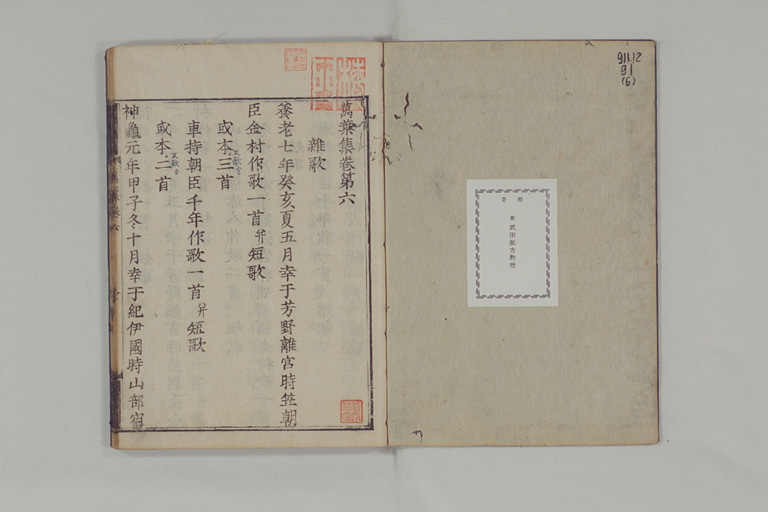 911.12
91
(6)
故武田祐吉教授
萬葉集卷第六
雜歌
養老七年癸亥夏五月幸于芳野離宮時笠朝
臣金村作歌一首并短歌
或本三首
車持朝臣千年作歌一首并短歌
或本二首
神龜元年甲子冬十月幸于紀伊國時山部宿